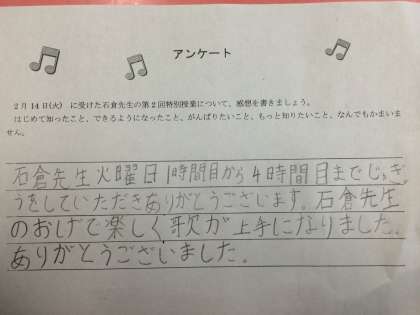 アンケート
2月14日(火) に受けた石倉先生の第2回特別授業について、感想を書きましょう。
はじめて知ったこと、できるようになったこと、がんばりたいこと、もっと知りたいこと、なんでもかまいま
せん。
石倉先生火曜日1時間目から4時間目までじゅぎょ
うをしていただきありがとうございます。石倉先生
のおかげで楽しく歌が上手になりました。
ありがとうございました。